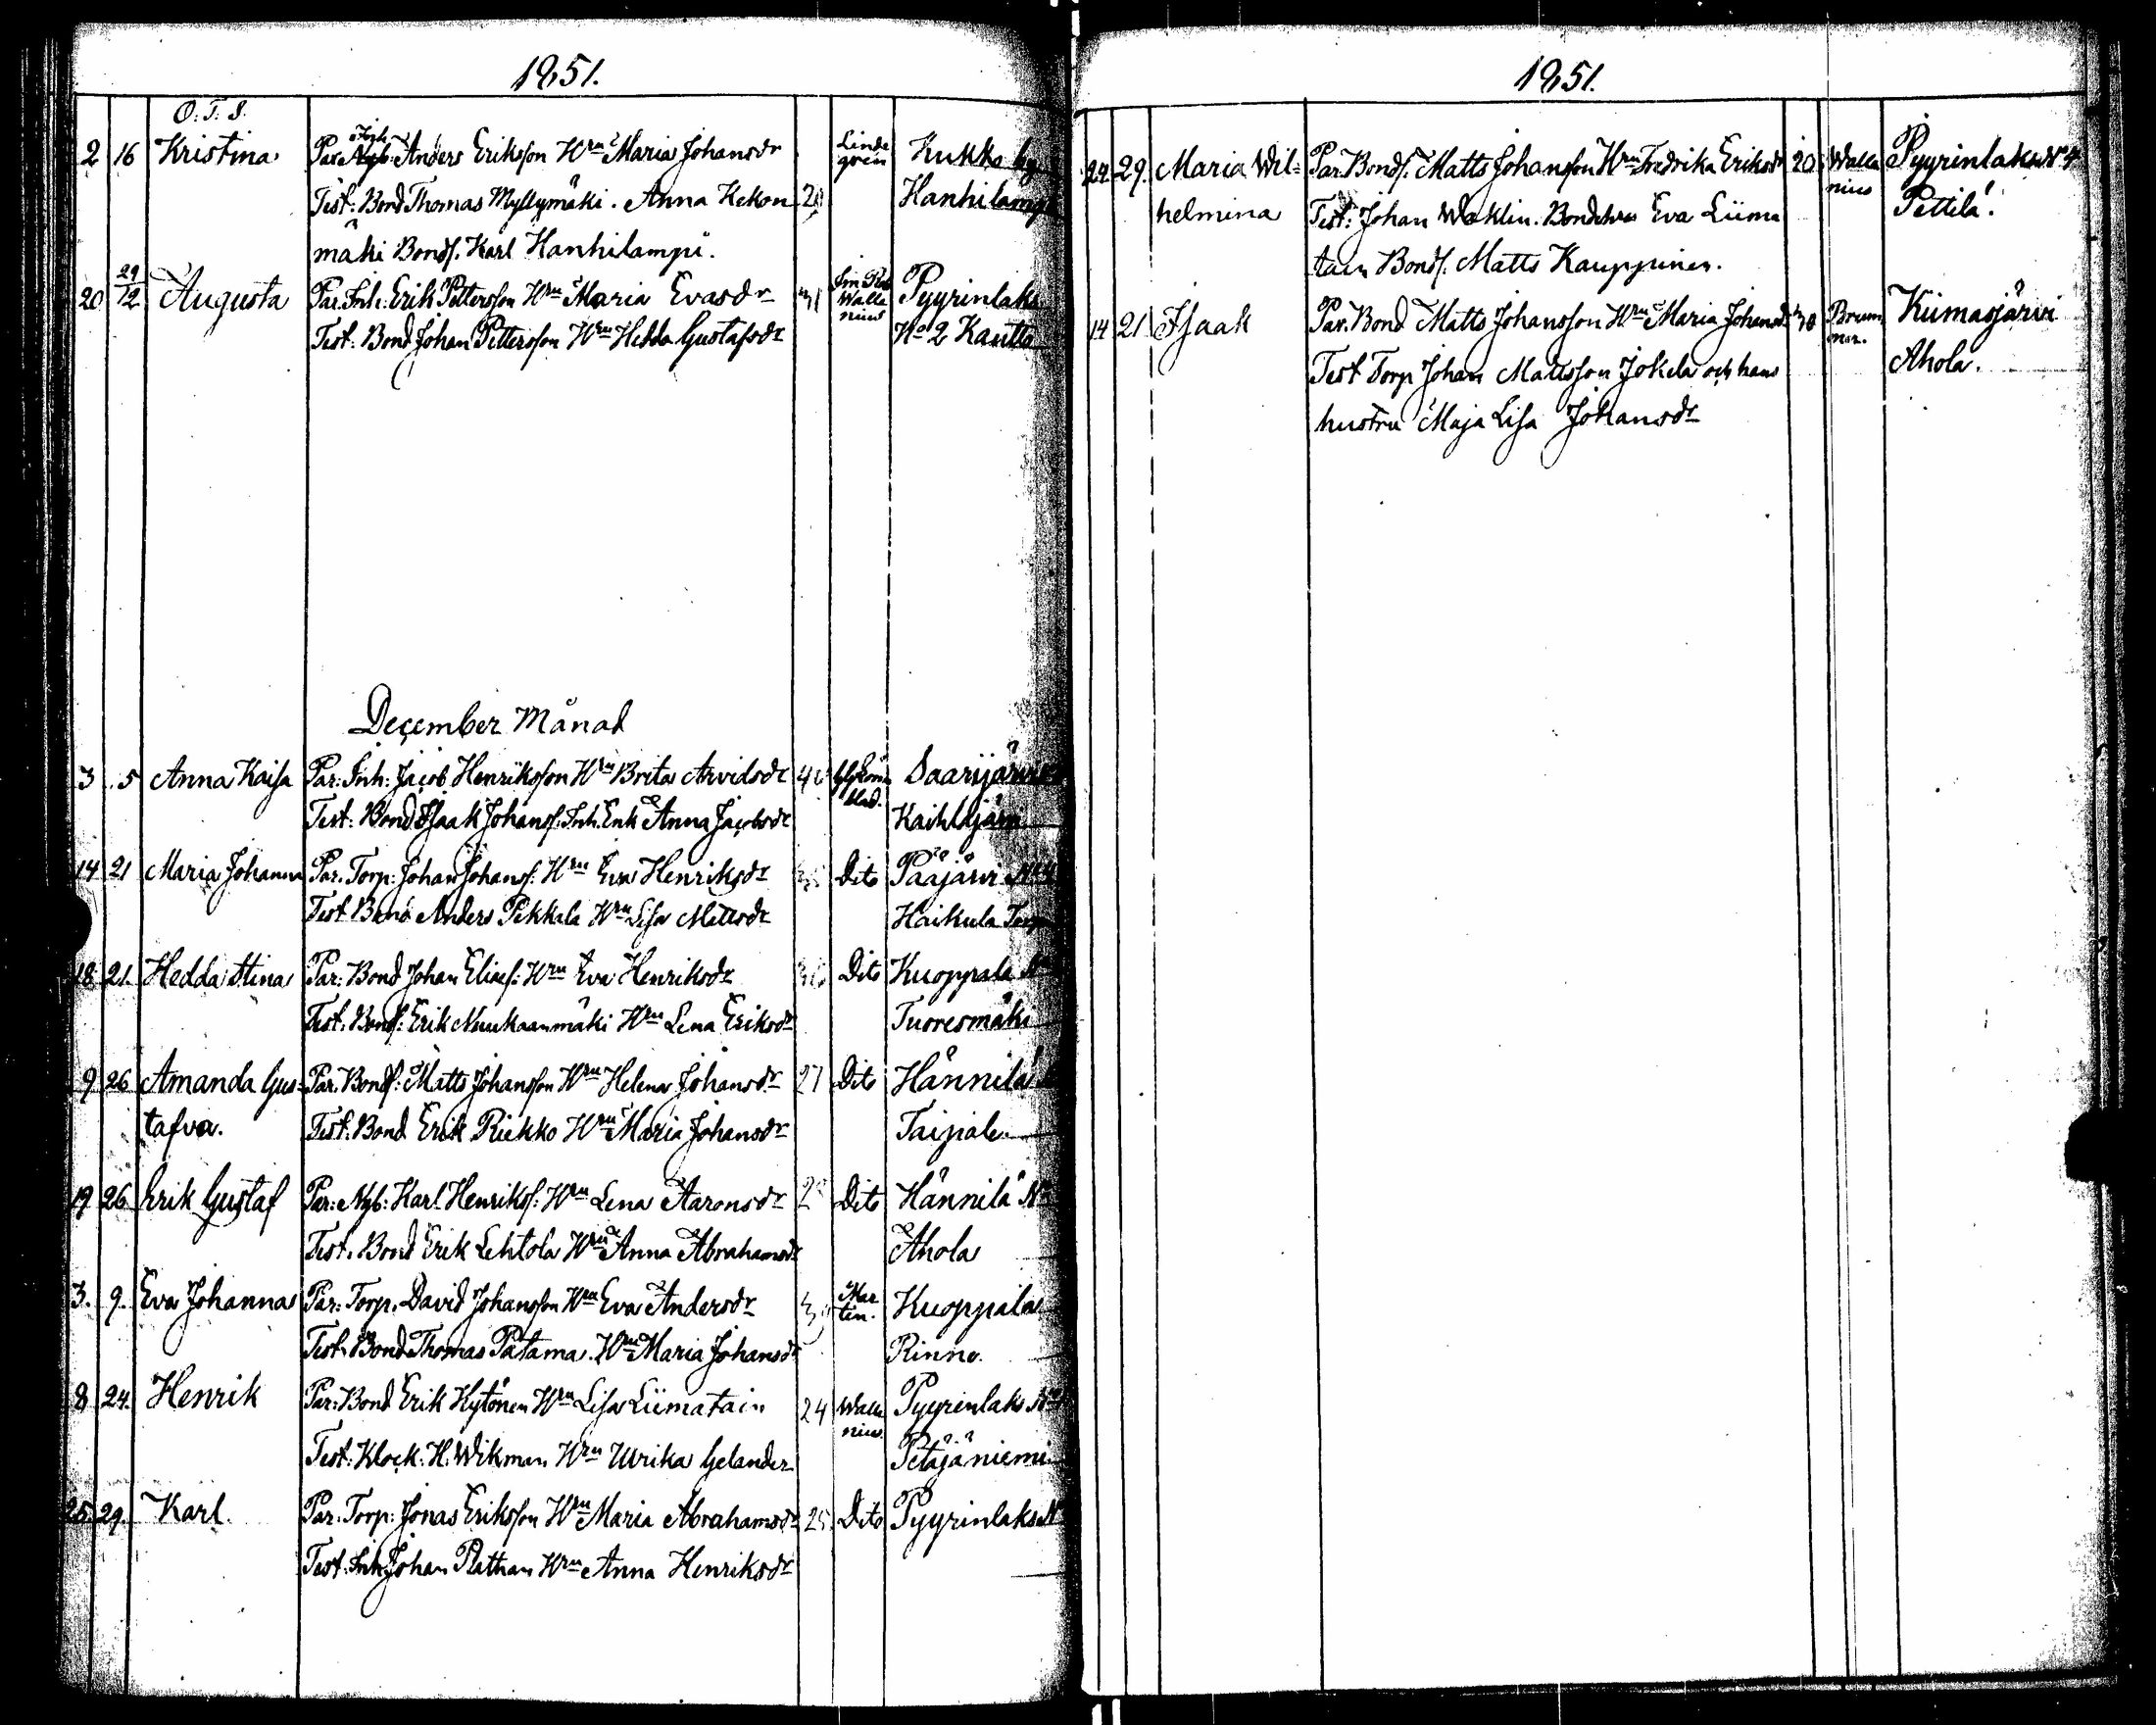 1851.
O. T. S.
2 16 Kristina Par. Inh. Anders Eriksson Hru Maria Johansdr Linde Kukko by
Test: Bond Thomas Myllymäki. Anna Kekon 29 gren Hanhilampi
mäki Bonds. Karl Hanhilampi.
20 29/12 Augusta Par. Inh: Erik Pettersson Hru Maria Evasdr 31 Walle Pyyrinlaks
Test. Bond Johan Pettersson Hru Hedda Gustafsdr nius No 2 Kautto
December Månad
3 5 Anna Kaisa Par: Inh: Jacob Henriksson Hru Brita Arvidsdr Saarijärvi
Test: Bond Isaak Johanss. Inh. Enk Anna Jacobsdr blad.
14 21 Maria Johanna Par. Torp: Johan Johanss: Hru Eva Henriksdr Dito Pääjärvi
Test. Bond Anders Pekkala Hru Lisa Mattsdr Haikula Torp
18 21. Hedda Stina Par: Bond Johan Eliass: Hru Eva Henriksdr 36 Dito Kuoppala No
Test. Bonds: Erik Niuukaanmäki Hru Lena Eriksdr Tuoresmäki
9 26 Amanda Gus- Par. Bonds: Matts Johansson Hru Helena Johansdr 27 Dito Hännilä
tafva. Test. Bond Erik Riekko Hru Maria Johansdr Taipale
19 26 Erik Gustaf Par: Nyb: Karl Henrikss: Hru Lena Aaronsdr Dito Hännilä No
Test. Bond Erik Lehtola Hru Anna Abrahamsdr Ahola
3. 9. Eva Johanna Par: Torp. David Johansson Hru Eva Andersdr Mar Kuoppala
Test. Bond Thomas Patama. Hru Maria Johansdr tin. Rinne.
8 24. Henrik Par: Bond Erik Kytönen Hru Lisa Liimatain 24 Walle Pyyrinlaks No
Test: Klock: H. Wikman Hru Ulrika Gelander nius. Petäjäniemi
25. 29. Karl. Par. Torp: Jonas Eriksson Hru Maria Abrahamsdr 25 Dito Pyyrinlaks No
Test. Inh. Johan Rathan Hru Anna Henriksdr
1851.
24. 29. Maria Wil- Par. Bonds. Matts Johansson Hru Fredrika Eriksdr 20 Walle Pyyrinlaks No 4
helmina Test: Johan Waklin. Bondehru Eva Liima nius Pettilä.
tain Bonds. Matts Kauppinen.
14 21 Isaak Par. Bond Matts Johansson Hru Maria Johansdr 30 Brum Kiimasjärvi
Test Torp Johan Mattsson Jokela och hans mer. Ahola.
hustru Maja Lisa Johansdr